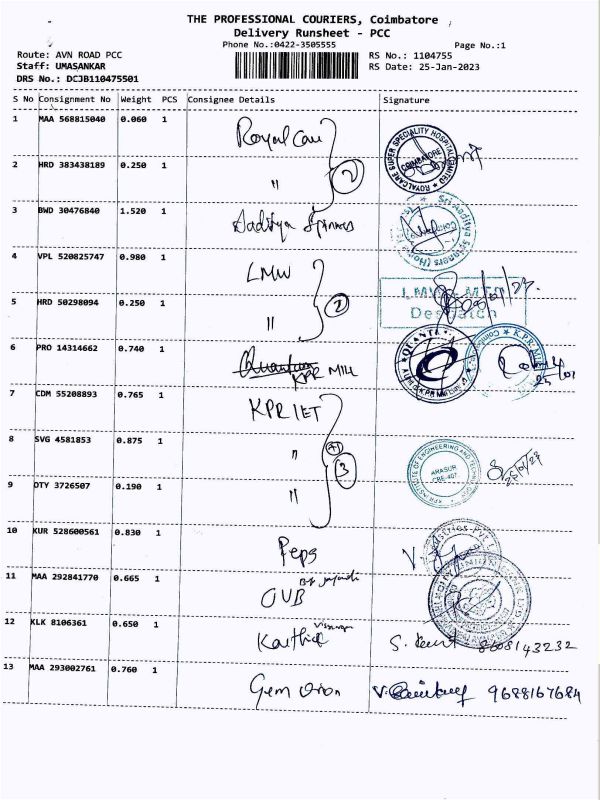 THE PROFESSIONAL COURIERS, Coimbatore
Delivery Runsheet - PCC
Phone No.:0422-3505555
Page No.:1
Route: AVN ROAD PCC
RS No.: 1104755
Staff: UMASANKAR
RS Date: 25-Jan-2023
DRS No.: DCJB110475501
S No Consignment No Weight PCS Consignee Details Signature
1 MAA 568815040 0.060 1 Royal Care
2 HRD 383438189 0.250 1 "
2
ROYALCARE SUPER SPECIALITY HOSPITAL LIMITED
COIMBATORE
3 BWD 30476840 1.520 1 Aaditya Spinners
Sri Aaditya Spinners
4 VPL 520825747 0.980 1 LMW
5 HRD 50298094 0.250 1 "
2
LMW
Despatch
6 PRO 14314662 0.740 1 Quantum KPR MILL
7 CDM 55208893 0.765 1 KPR IET
8 SVG 4581853 0.875 1 "
9 DTY 3726507 0.190 1 "
3
KPR INSTITUTE OF ENGINEERING AND TECHNOLOGY
ARASUR
CBE-407
10 KUR 528600561 0.830 1 Peps
11 MAA 292841770 0.665 1 CUB
12 KLK 8106361 0.650 1 Karthick
8608143232
13 MAA 293002761 0.760 1 Gem Orion
9688167684